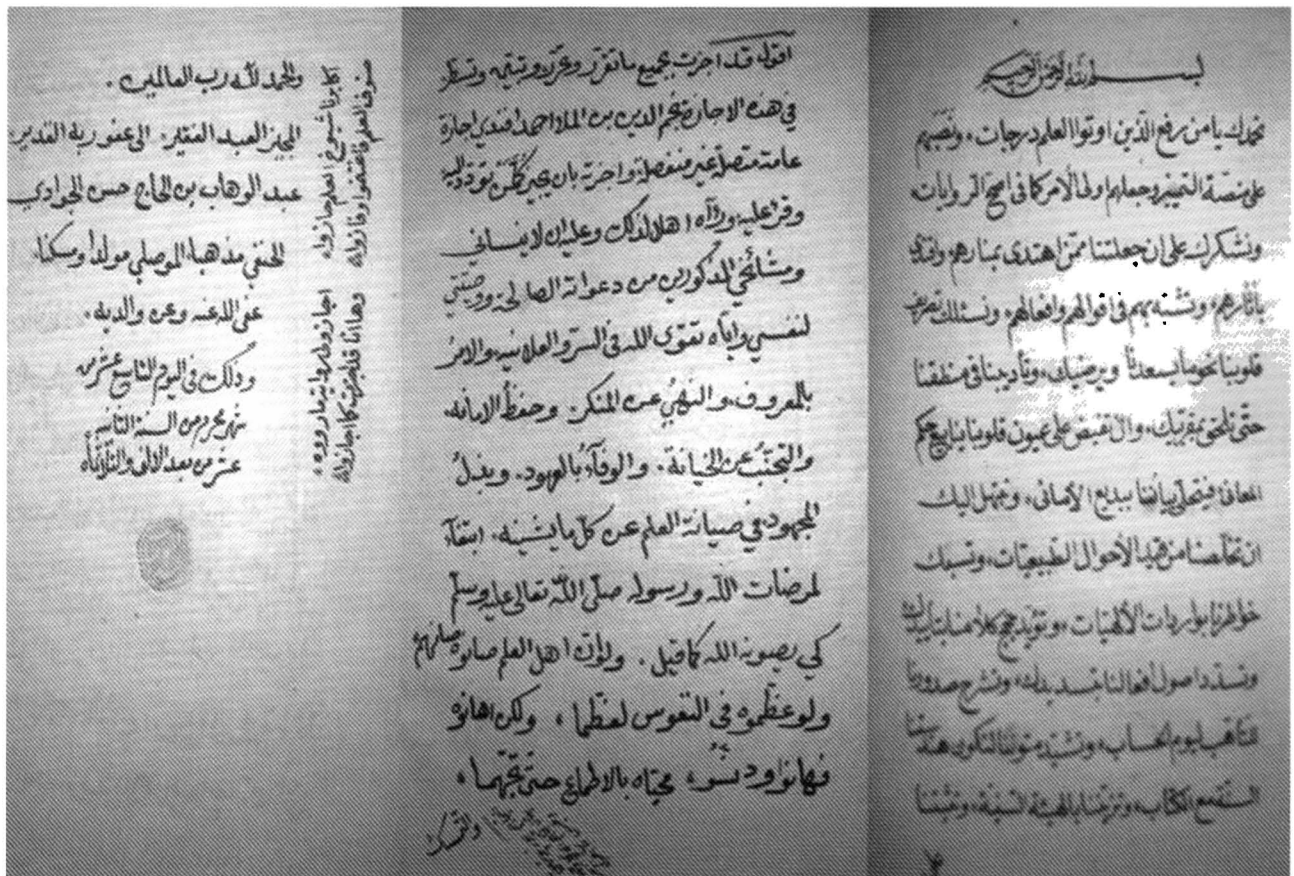 بسم الله الرحمن الرحيم
نحمدك يا من رفع الذين اوتوا العلم درجات، ونصبهم
على منصة التمييز وجعلهم اولى الأمر كما فى اصح الروايات
ونشكرك على ان جعلتنا ممن اهتدى بمنارهم واقتدى
بآثارهم، وتشبه بهم فى اقوالهم وافعالهم، ونسئلك تصريف
قلوبنا نحو ما يسعدنا ويرضيك، وتأديبنا فى منطقنا
حتى نلحق بمقربيك، وان تفيض على عيون قلوبنا ينابيع حكم
المعانى، فيتحلى بياننا ببديع الأمانى، ونبتهل اليك
ان تخلصنا من قيد الأحوال الطبيعيات، وتسبك
خواطرنا بواردات الألهيات، وتؤيد حجج كلامنا بتأييدك
وتسدد اصول أفعالنا بتسديدك، وتشرح صدورنا
للتأهب ليوم الحساب، وتشيد متوننا لتكون
السنة مع الكتاب، وتزيننا بالهيئة السنية، وتثبتنا
اقول قد اجزت بجميع ما تقرر وتحرر وتبين وتسطر
في هذه الاجازة نجم الدين بن الملا احمد افندي اجازة
عامة متصلة غير منفصلة، واجزته بان يجيز لكل من
وقرء عليه ورآه اهلا لذلك وعليه ان لا ينساني
ومشائخي المذكورين من دعواته الصالحة ووصيتي
لنفسي واياه تقوى الله في السر والعلانيه والامر
بالمعروف والنهي عن المنكر. وحفظ الامانه.
والتجنب عن الخيانة. والوفآء بالعهود. وبذل
المجهود، في صيانة العلم عن كل ما يشينه. ابتغآء
لمرضات الله ورسوله صلى الله تعالى عليه وسلم
كي يصونه الله كما قيل. ولو ان اهل العلم صانوه صانهم
ولو عظموه في النفوس لعظما، ولكن اهانوه
فهانوا ودنسوا، محياه بالاطماع حتى تجهما،
صنوف العلم فاغتنموا وفازوا
اكابرنا شيوخ العلم حازوا،
وها انا قد اجزت كما اجازوا
اجازوني رواية ما رووه،
والحمد لله رب العالمين.
المجيز العبد الفقير. الى عفو ربه القدير
عبد الوهاب بن الحاج حسن الجوادي
الحنفي مذهبا. الموصلي مولدا ومسكنا.
عفى الله عنه وعن والديه.
وذلك في اليوم التاسع عشر من
شهر محرم من السنة الثانيه
عشر من بعد الالف والثلاثمأه